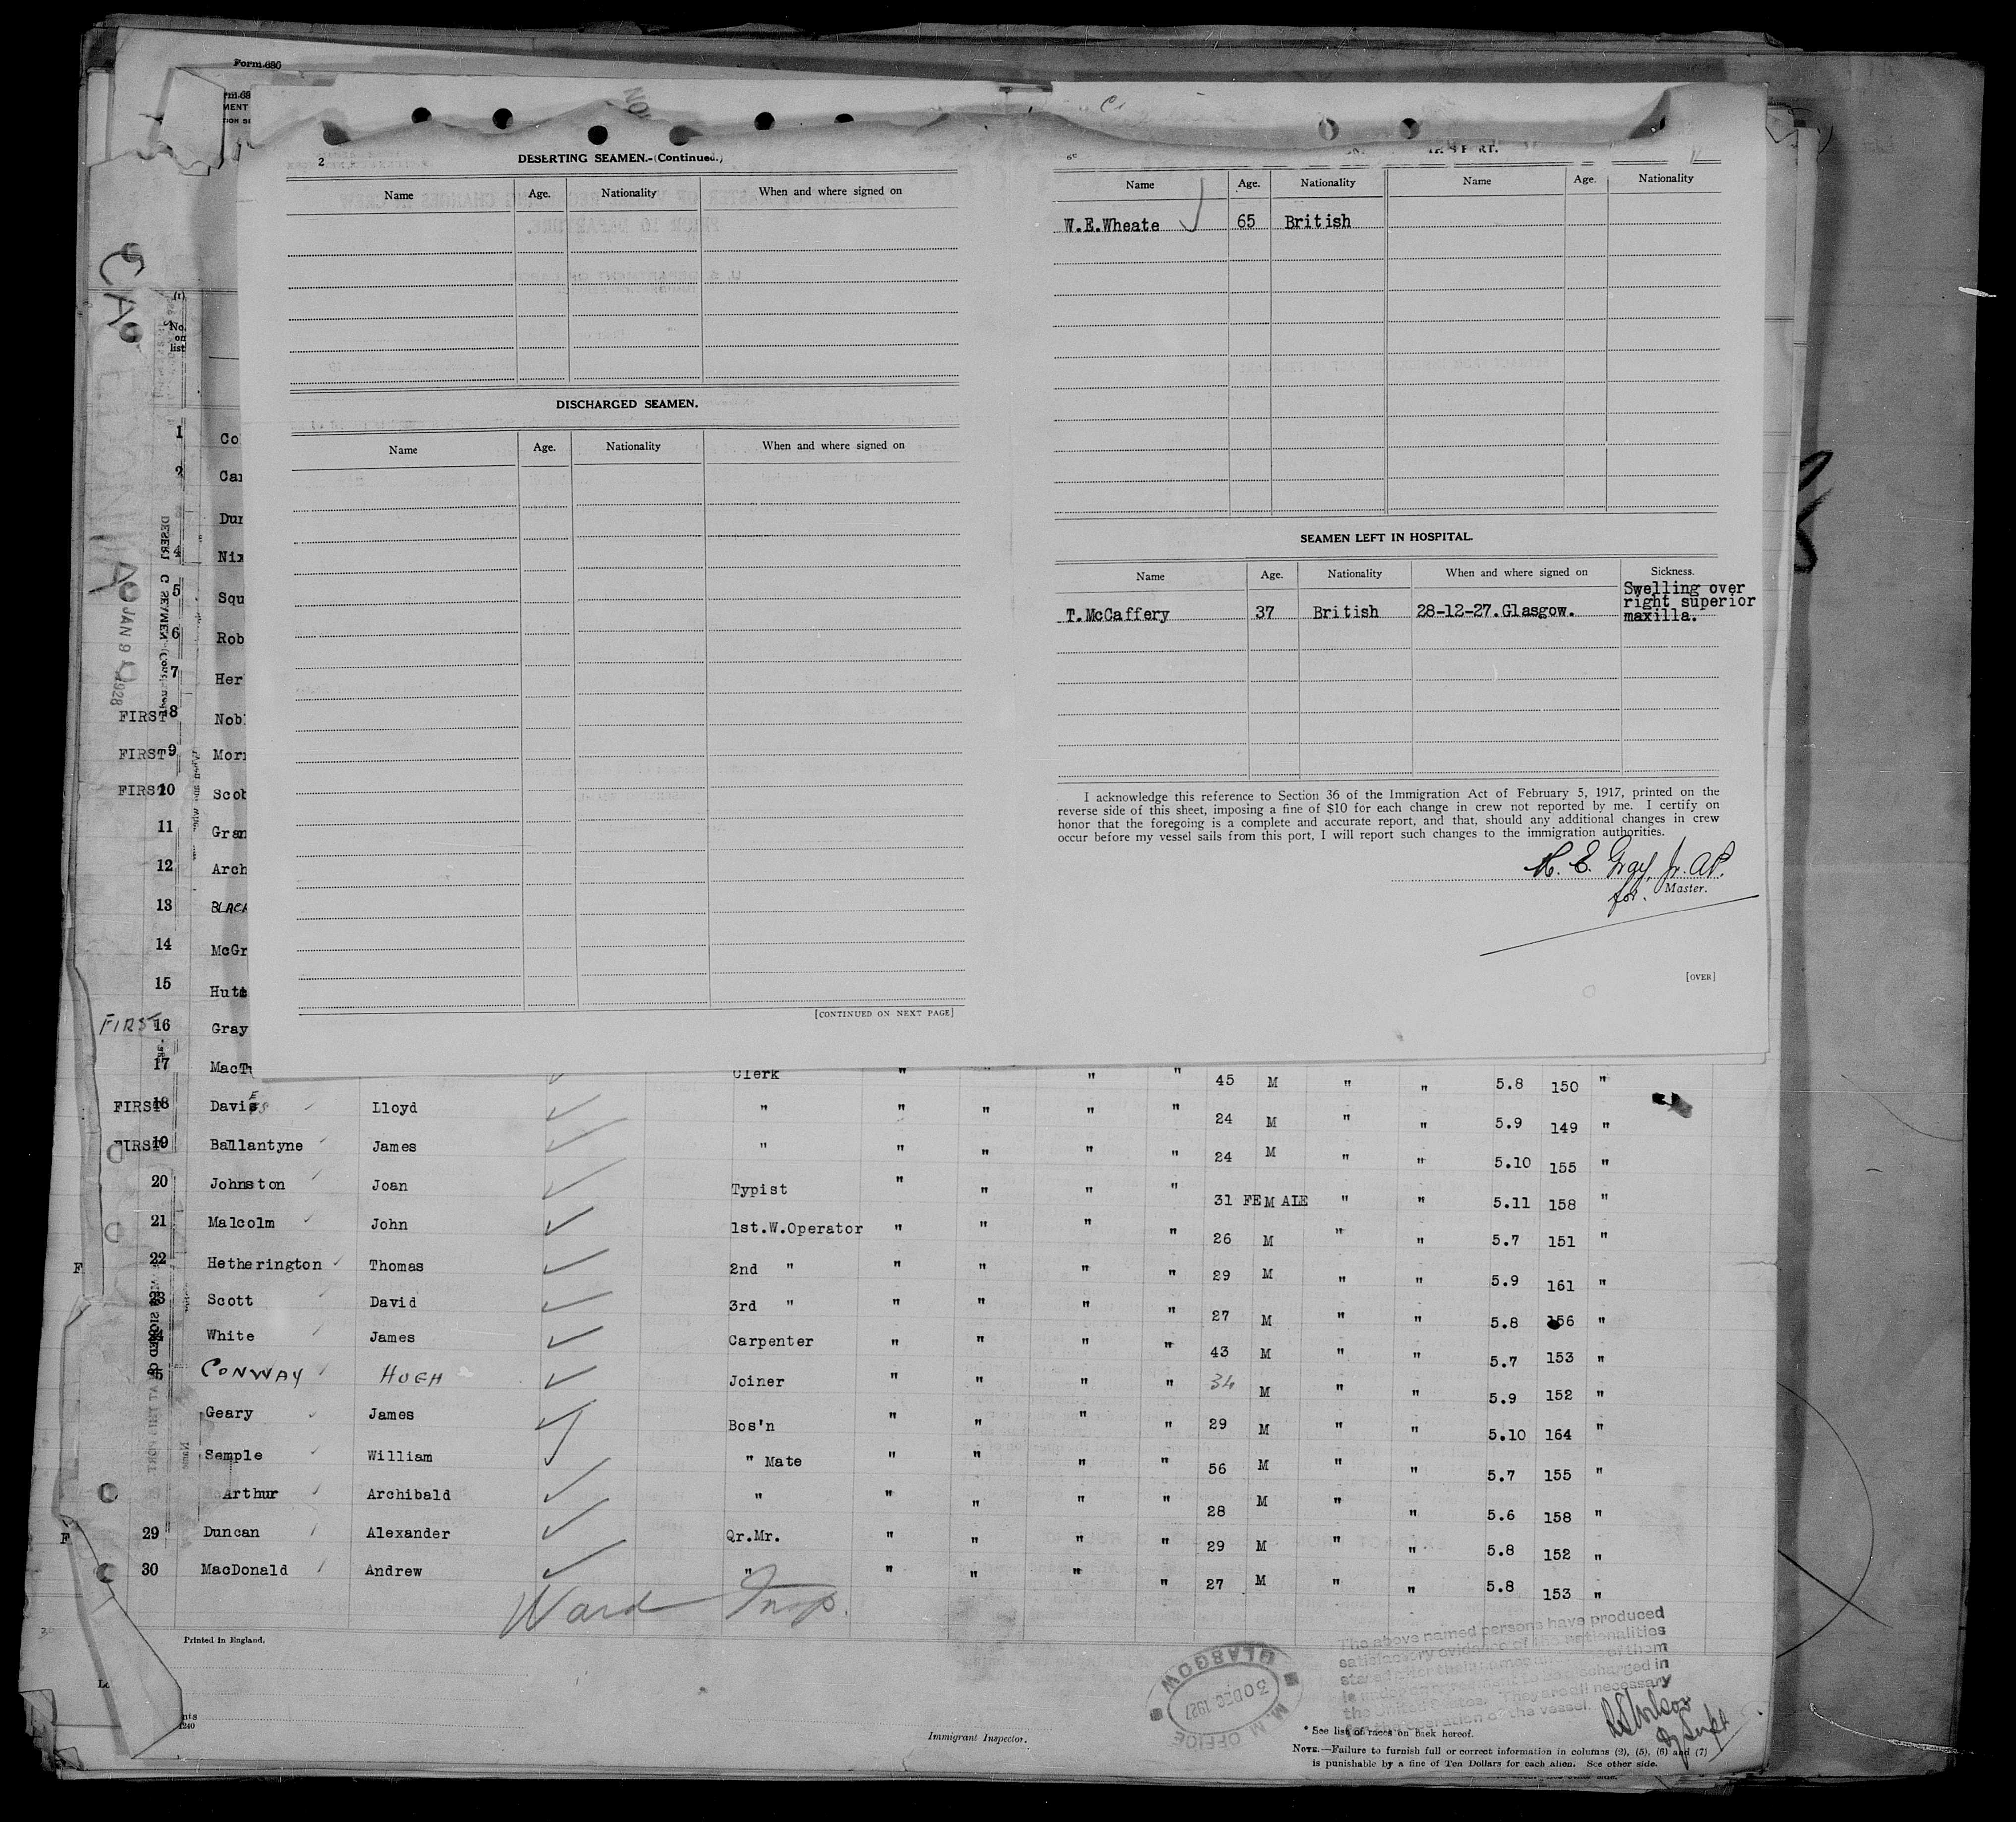 Form 686
2
DESERTING SEAMEN.-(Continued.)
Name Age. Nationality When and where signed on
DISCHARGED SEAMEN.
Name Age. Nationality When and where signed on
[CONTINUED ON NEXT PAGE]
Name Age. Nationality Name Age. Nationality
W.E.Wheate 65 British
SEAMEN LEFT IN HOSPITAL.
Name Age. Nationality When and where signed on Sickness.
T.McCaffery 37 British 28-12-27.Glasgow. Swelling over
right superior
maxilla.
I acknowledge this reference to Section 36 of the Immigration Act of February 5, 1917, printed on the
reverse side of this sheet, imposing a fine of $10 for each change in crew not reported by me. I certify on
honor that the foregoing is a complete and accurate report, and that, should any additional changes in crew
occur before my vessel sails from this port, I will report such changes to the immigration authorities.
H. E. Gray, Jr. A.P.
for. Master.
[OVER]
(1)
No.
on
list
JAN 9 1928
1 Co
2 Car
Dur
4 Nix
5 Squ
6 Rob
7 Her
FIRST 8 Nob
FIRST 9 Mor
FIRST 10 Scob
11 Gran
12 Arch
13 BLACK
14 McGr
15 Hutt
FIRST 16 Gray
17 MacT Clerk " " " " 45 M " " 5.8 150 "
FIRST 18 Davies Lloyd " " " " " 24 M " " 5.9 149 "
FIRST 19 Ballantyne James " " " " " 24 M " " 5.10 155 "
20 Johnston Joan Typist " " " " 31 FEMALE " " 5.11 158 "
21 Malcolm John 1st.W.Operator " " " " 26 M " " 5.7 151 "
22 Hetherington Thomas 2nd " " " " " 29 M " " 5.9 161 "
23 Scott David 3rd " " " " " 27 M " " 5.8 156 "
24 White James Carpenter " " " " 43 M " " 5.7 153 "
25 CONWAY HUGH Joiner " " " " 34 M " " 5.9 152 "
Geary James Bos'n " " " " 29 M " " 5.10 164 "
Semple William " Mate " " " " 56 M " " 5.7 155 "
Arthur Archibald " " " " " 28 M " " 5.6 158 "
29 Duncan Alexander Qr.Mr. " " " " 29 M " " 5.8 152 "
30 MacDonald Andrew " " " " " 27 M " " 5.8 153 "
Ward Insp.
Printed in England.
M.M. OFFICE
GLASGOW
30 DEC 1927
The above named persons have produced
satisfactory evidence of the nationalities
stated after their names and none of them
is under agreement to be discharged in
the United States. They are all necessary
for the operation of the vessel.
Immigrant Inspector.
* See list of races on back hereof.
NOTE.—Failure to furnish full or correct information in columns (2), (5), (6) and (7)
is punishable by a fine of Ten Dollars for each alien. See other side.